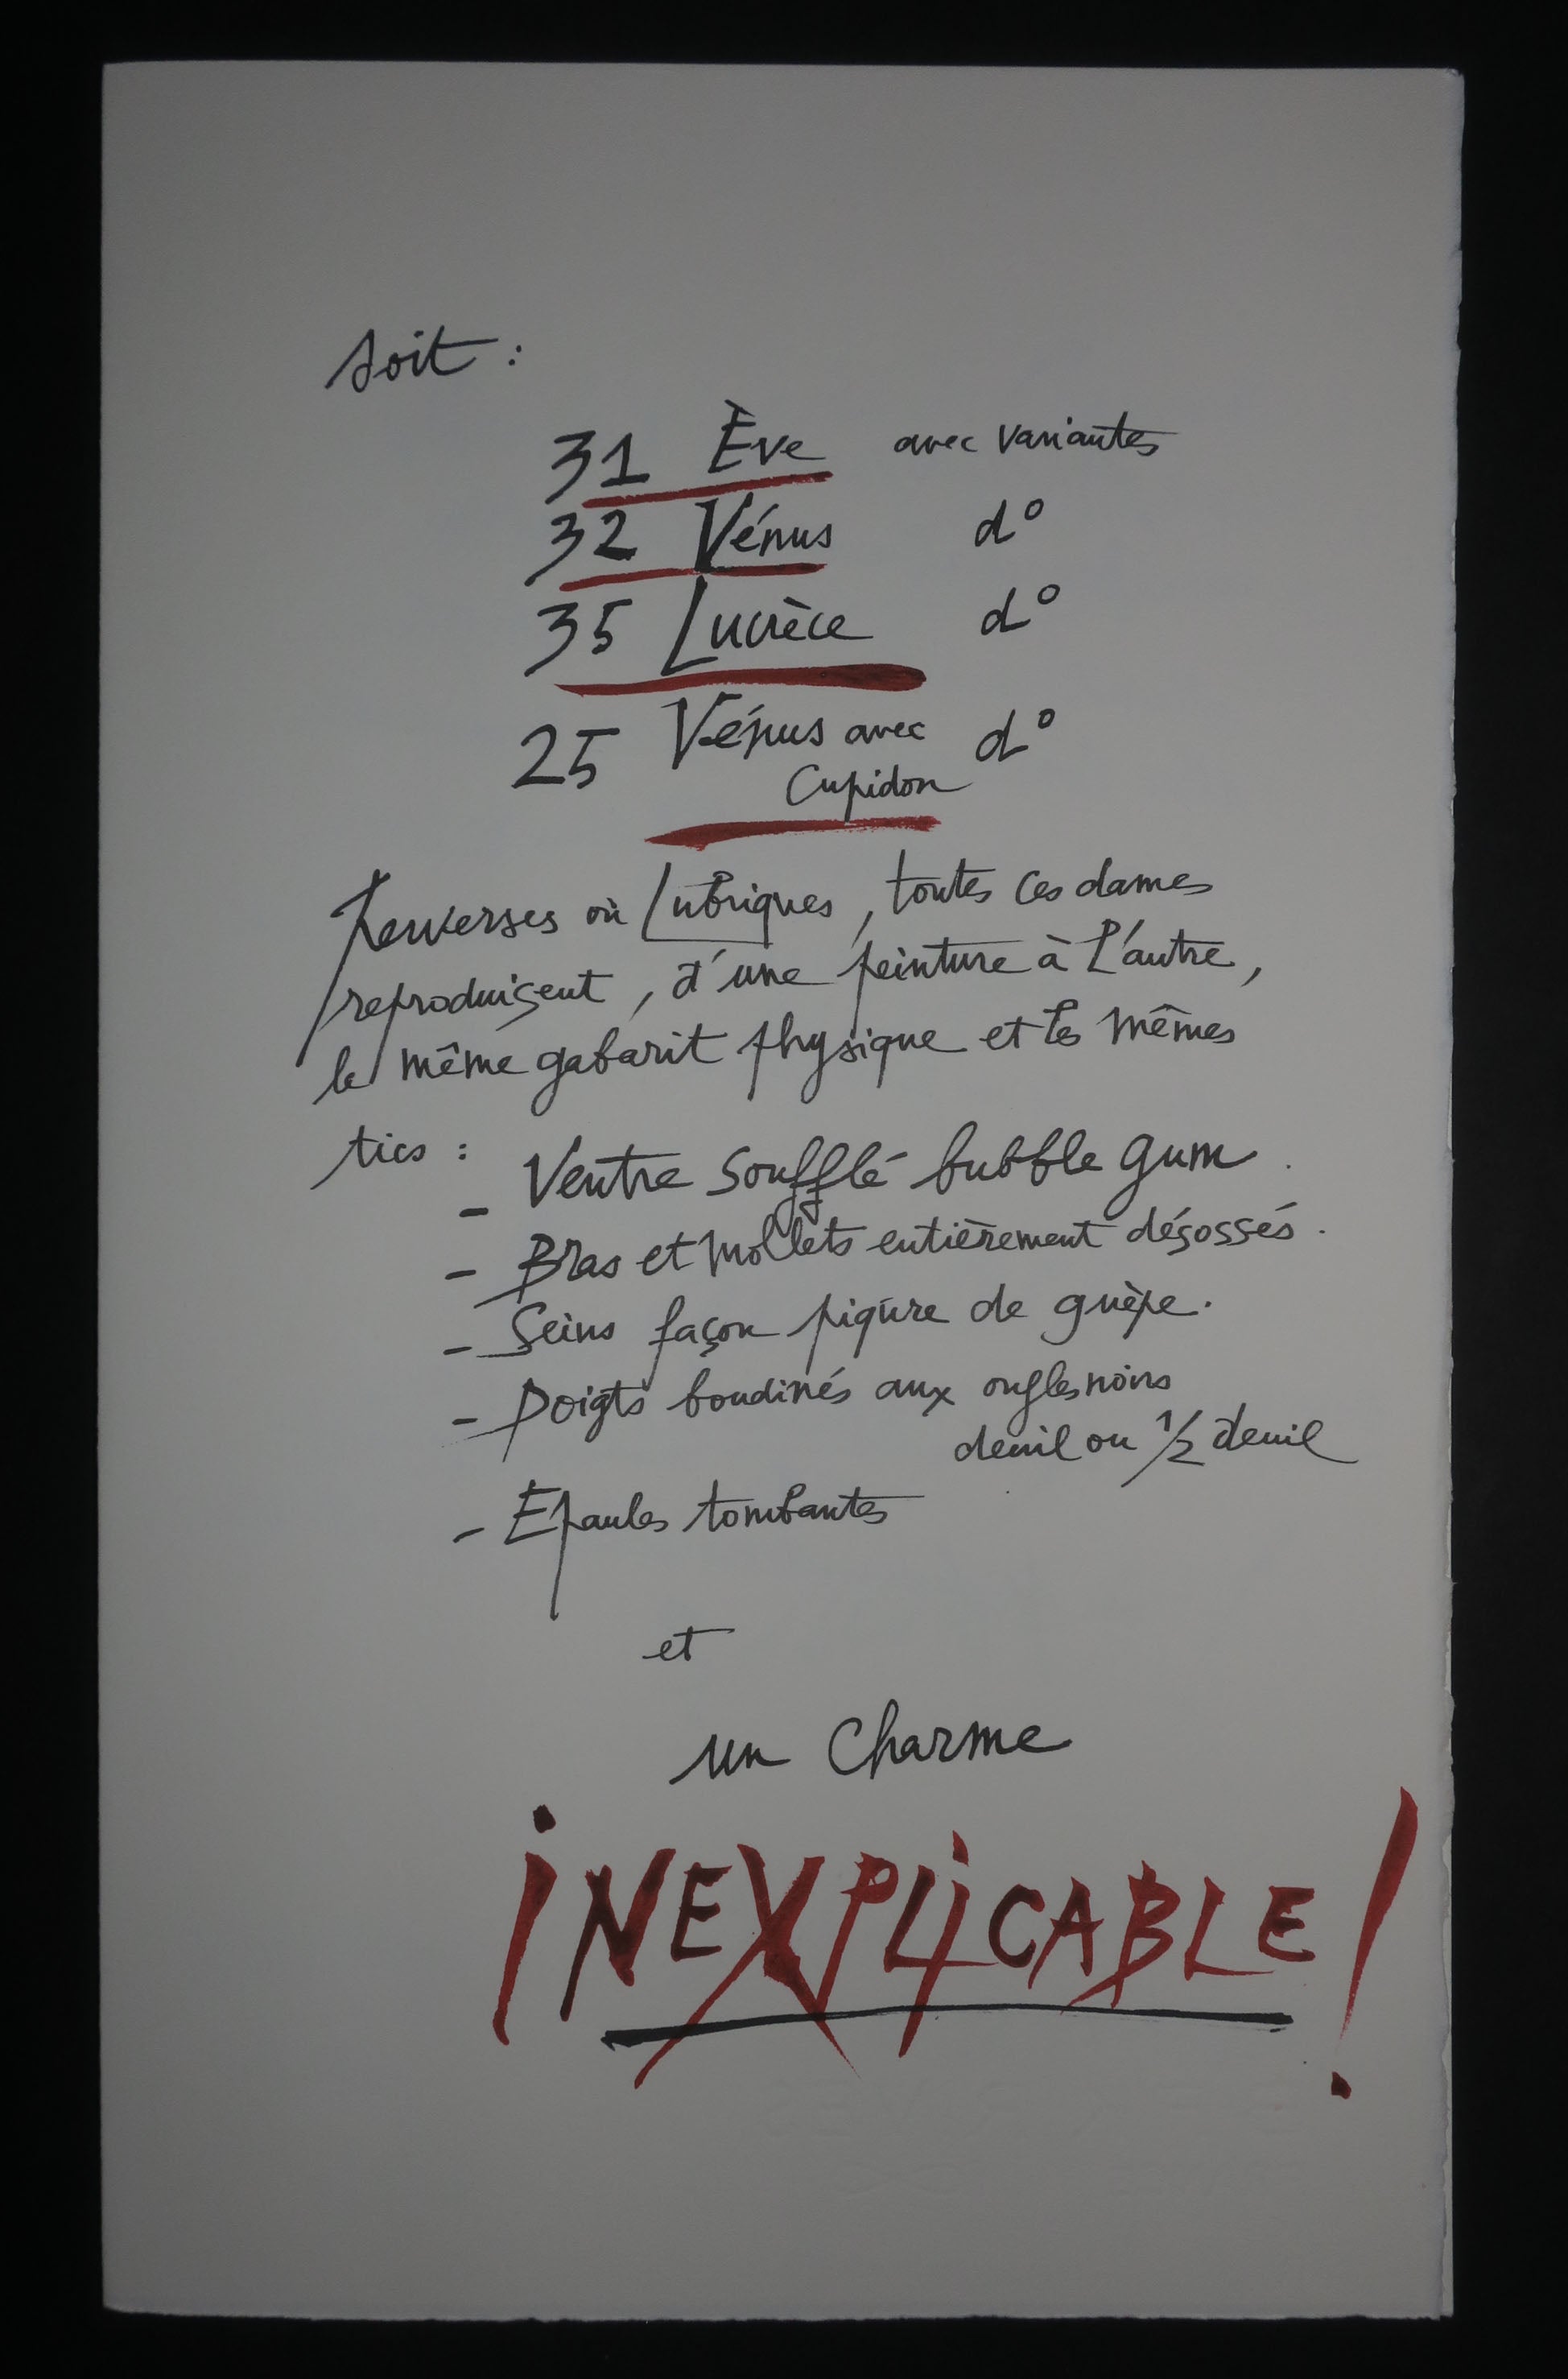 soit :
31 Ève avec variantes
32 Vénus d°
35 Lucrèce d°
25 Vénus avec d°
Cupidon
Perverses où Lubriques, toutes ces dames
reproduisent, d'une peinture à l'autre,
le même gabarit physique et les mêmes
tics :
- Ventre soufflé bubble gum.
- Bras et mollets entièrement désossés.
- Seins façon piqûre de guèpe.
- Doigts boudinés aux ongles noirs
deuil ou 1/2 deuil
- Epaules tombantes
et
un Charme
iNEXPLiCABLE !